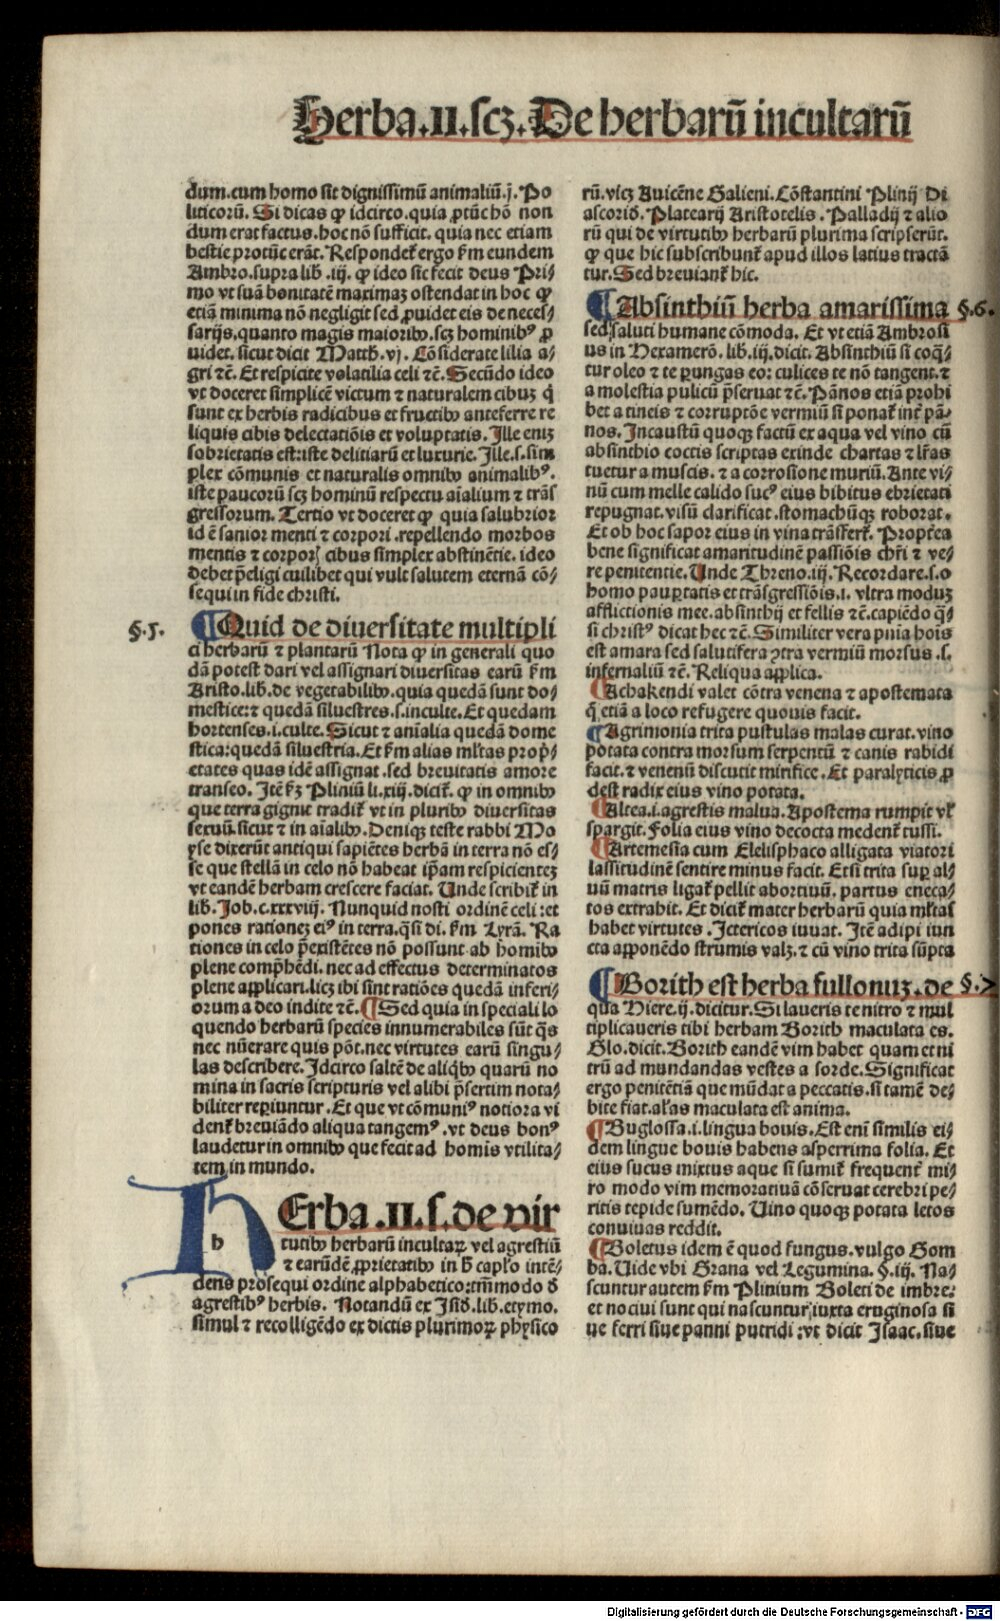 Herba.II.scꝫ.De herbarū incultarū
dum.cum homo sit dignissimū animaliū.j. Po
liticorū. Si dicas ꝙ idcirco.quia ꝓtūc hō non
dum erat factus.hoc nō sufficit. quia nec etiam
bestie protūc erāt. Respondet̄ ergo ẜm eundem
Ambro.supra lib .iij. ꝙ ideo sic fecit deus Pri⸗
mo vt suā bonitatē maximaꝫ ostendat in hoc ꝙ
etiā minima nō negligit sed ꝓuidet eis de neces⸗
sarijs.quanto magis maioribꝰ.scꝫ hominibꝰ ꝓ
uidet. sicut dicit Matth.vj. Cōsiderate lilia a⸗
gri ⁊c̄. Et respicite volatilia celi ⁊c̄. Secūdo ideo
vt doceret simplicē victum ⁊ naturalem cibuꝫ q̄
sunt ex herbis radicibus et fructibꝰ anteferre re
liquis cibis delectatiōis et voluptatis. Ille eniꝫ
sobrietatis est:iste delitiarū et luxurie. Ille.s.sim
plex cōmunis et naturalis omnibꝰ animalibꝰ.
iste paucorū scꝫ hominū respectu aīalium ⁊ trās
gressorum. Tertio vt doceret ꝙ quia salubrior
id ē sanior menti ⁊ corpori .repellendo morbos
mentis ⁊ corporꝭ cibus simplex abstinētie. ideo
debet p̄eligi cuilibet qui vult salutem eternā cō⸗
sequi in fide christi.
§.5. ¶Quid de diuersitate multipli
ci herbarū ⁊ plantarū Nota ꝙ in generali quo
dā potest dari vel assignari diuersitas earū ẜm
Aristo.lib.de vegetabilibꝰ.quia quedā sunt do⸗
mestice:⁊ quedā siluestres.s.inculte. Et quedam
hortenses.i.culte. Sicut ⁊ aīalia quedā dome
stica:quedā siluestria. Et ẜm alias mĺtas prop̄⸗
etates quas idē assignat .sed breuitatis amore
transeo. Itē ẜꝫ Pliniū li.xiij.dicit̄. ꝙ in omnibꝰ
que terra gignit tradit̄ vt in pluribꝰ diuersitas
sexuū.sicut ⁊ in aīalibꝰ. Deniqꝫ teste rabbi Mo
yse dixerūt antiqui sapiētes herbā in terra nō es⸗
se que stellā in celo nō habeat ip̄am respicienteꝫ
vt eandē herbam crescere faciat. Unde scribit̄ in
lib. Job.c.xxxviij. Nunquid nosti ordinē celi:et
pones rationeꝫ eiꝰ in terra.q̄si di. ẜm Lyrā. Ra
tiones in celo p̄existētes nō possunt ab homibꝰ
plene comp̄hēdi. nec ad effectus determinatos
plene applicari.licꝫ ibi sint ratiōes quedā inferi⸗
orum a deo indite ⁊c̄. ¶Sed quia in speciali lo
quendo herbarū species innumerabiles sūt q̄s
nec nūerare quis pōt.nec virtutes earū singu⸗
las describere. Idcirco saltē de aliq̄bꝰ quarū no
mina in sacris scripturis vel alibi p̄sertim nota⸗
biliter reperiuntur. Et que vt cōmuniꝰ notiora vi
dent̄ breuiādo aliqua tangemꝰ .vt deus bonꝰ
laudetur in omnibꝰ que fecit ad homis vtilita⸗
tem in mundo.
h
HErba .II.s.de vir
tutibꝰ herbarū incultaꝝ vel agrestiū
⁊ earūdē ꝓprietatibꝰ in h̄ caplo intē⸗
dens prosequi ordine alphabetico:tm̄modo d̄
agrestibꝰ herbis. Notandū ex Isid.lib.etymo.
simul ⁊ recolligēdo ex dictis plurimoꝝ physico
rū.vicꝫ Auicēne Galieni. Cōstantini Plinij Di
ascorid. Platearij Aristotelis . Palladij ⁊ alio
rū qui de virtutibꝰ herbarū plurima scripserūt.
ꝙ que hic subscribunt̄ apud illos latius tractā
tur. Sed breuiant̄ hic.
¶Absinthiū herba amarissima §.6.
sed saluti humane cōmoda. Et vt etiā Ambrosi
us in Hexamerō. lib.iij.dicit. Absinthiū si coq̄⸗
tur oleo ⁊ te perungas eo: culices te nō tangent.⁊
a molestia pulicū p̄seruat ⁊c̄. Pānos etiā prohi
bet a tineis ⁊ corruptōe vermiū si ponat̄ int̄ pā⸗
nos. Incaustū quoqꝫ factū ex aqua vel vino cū
absinthio coctis scriptas exinde chartas ⁊ lr̄as
tuetur a muscis. ⁊ a corrosione muriū. Ante vi⸗
nū cum melle calido sucꝰ eius bibitus ebrietati
repugnat. visū clarificat .stomachūqꝫ roborat.
Et ob hoc sapor eius in vina trāsfert̄. Propt̄ea
bene significat amaritudinē passiōis chr̄i ⁊ ve⸗
re penitentie. Unde Threno.iij. Recordare.s.o
homo paupertatis et trāsgressiōis.i. vltra moduꝫ
afflictionis mee.absinthij et fellis ⁊c̄.capiēdo q̄⸗
si christꝰ dicat hec ⁊c̄. Similiter vera pn̄ia hois
est amara sed salutifera ↄtra vermiū morsus .s.
infernaliū ⁊c̄. Reliqua applica.
¶Achakendi valet cōtra venena ⁊ apostemata
q̄ etiā a loco refugere quouis facit.
¶Agrimonia trita pustulas malas curat. vino
potata contra morsum serpentū ⁊ canis rabidi
facit.⁊ venenū discutit mirifice. Et paralyticis ꝓ
dest radix eius vino potata.
¶Altea.i.agrestis malua. Apostema rumpit vĺ
spargit. Folia eius vino decocta medent̄ tussi.
¶Artemesia cum Elelisphaco alligata viatori
lassitudinē sentire minus facit. Etsi trita super al⸗
uū matris ligat̄ pellit abortiuū. partus eneca⸗
tos extrahit. Et dicit̄ mater herbarū quia mĺtas
habet virtutes. Ictericos iuuat. Itē adipi iun
cta apponēdo strumis valꝫ.⁊ cū vino trita sūpta
¶Borith est herba fullonuꝫ. de §.7
qua Hiere.ij.dicitur. Si laueris te nitro ⁊ mul
tiplicaueris tibi herbam Borith maculata es.
Glo.dicit. Borith eandē vim habet quam et ni
trū ad mundandas vestes a sorde. Significat
ergo penitētiā que mūdat a peccatis. si tamē de⸗
bite fiat.al'as maculata est anima.
¶Buglossa.i.lingua bouis. Est eni similis ei⸗
dem lingue bouis habens asperrima folia. Et
eius sucus mixtus aque si sumit̄ frequent̄ mi⸗
ro modo vim memoratiuā cōseruat cerebri pe⸗
ritis tepide sumēdo. Uino quoqꝫ potata letos
conuiuas reddit.
¶Boletus idem ē quod fungus.vulgo Gom
ba. Uide vbi Grana vel Legumina. §.iij. Na⸗
scuntur autem ẜm Plinium Boleti de imbre:
et nociui sunt qui nascuntur iuxta eruginosa si
ue ferri siue panni putridi :vt dicit Isaac. siue
Digitalisierung gefördert durch die Deutsche Forschungsgemeinschaft - DFG